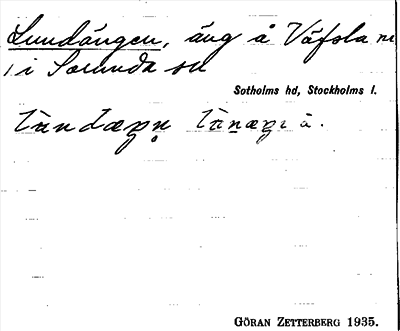 Lundängen, äng å Väfsla nr
1 i Sorunda sn
Sotholms hd, Stockholms l.
GÖRAN ZETTERBERG 1935.